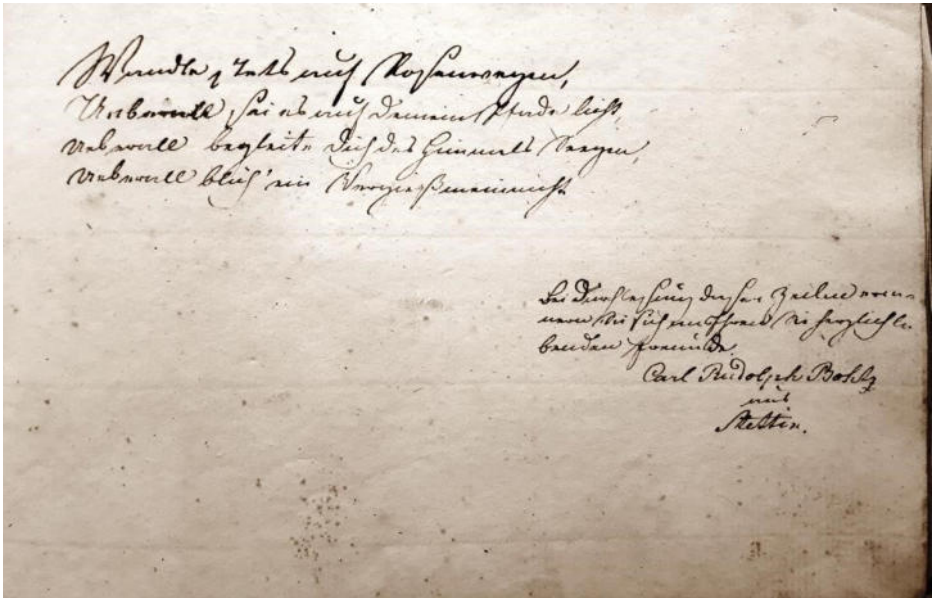 Wandle stets auf Rosenwegen,
Ueberall sei es auf Deinem Pfade licht,
Ueberall begleite Dich des Himmels Seegen,
Ueberall blüh' ein Vergißmeinnicht
Bei Durchlesung dieser Zeilen erin-
nern Sie sich an Ihren Sie herzlich lie-
benden Freunde
Carl Rudolph
aus
Stettin.